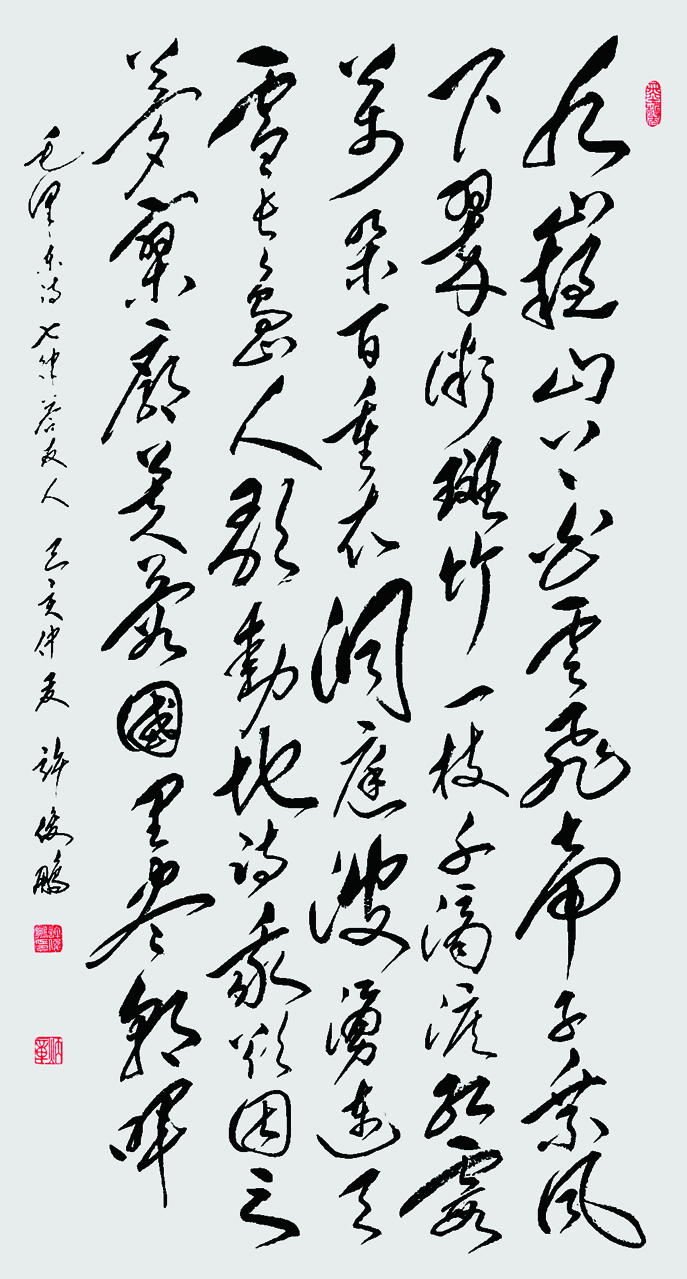 九嶷山上白云飞帝子乘风
下翠微斑竹一枝千滴泪红霞
萬朵百重衣洞庭波湧连天
雪长島人歌動地诗我欲因之
夢寥廓芙蓉國里尽朝晖
毛泽东诗七律答友人 己亥仲夏 许俊鹏